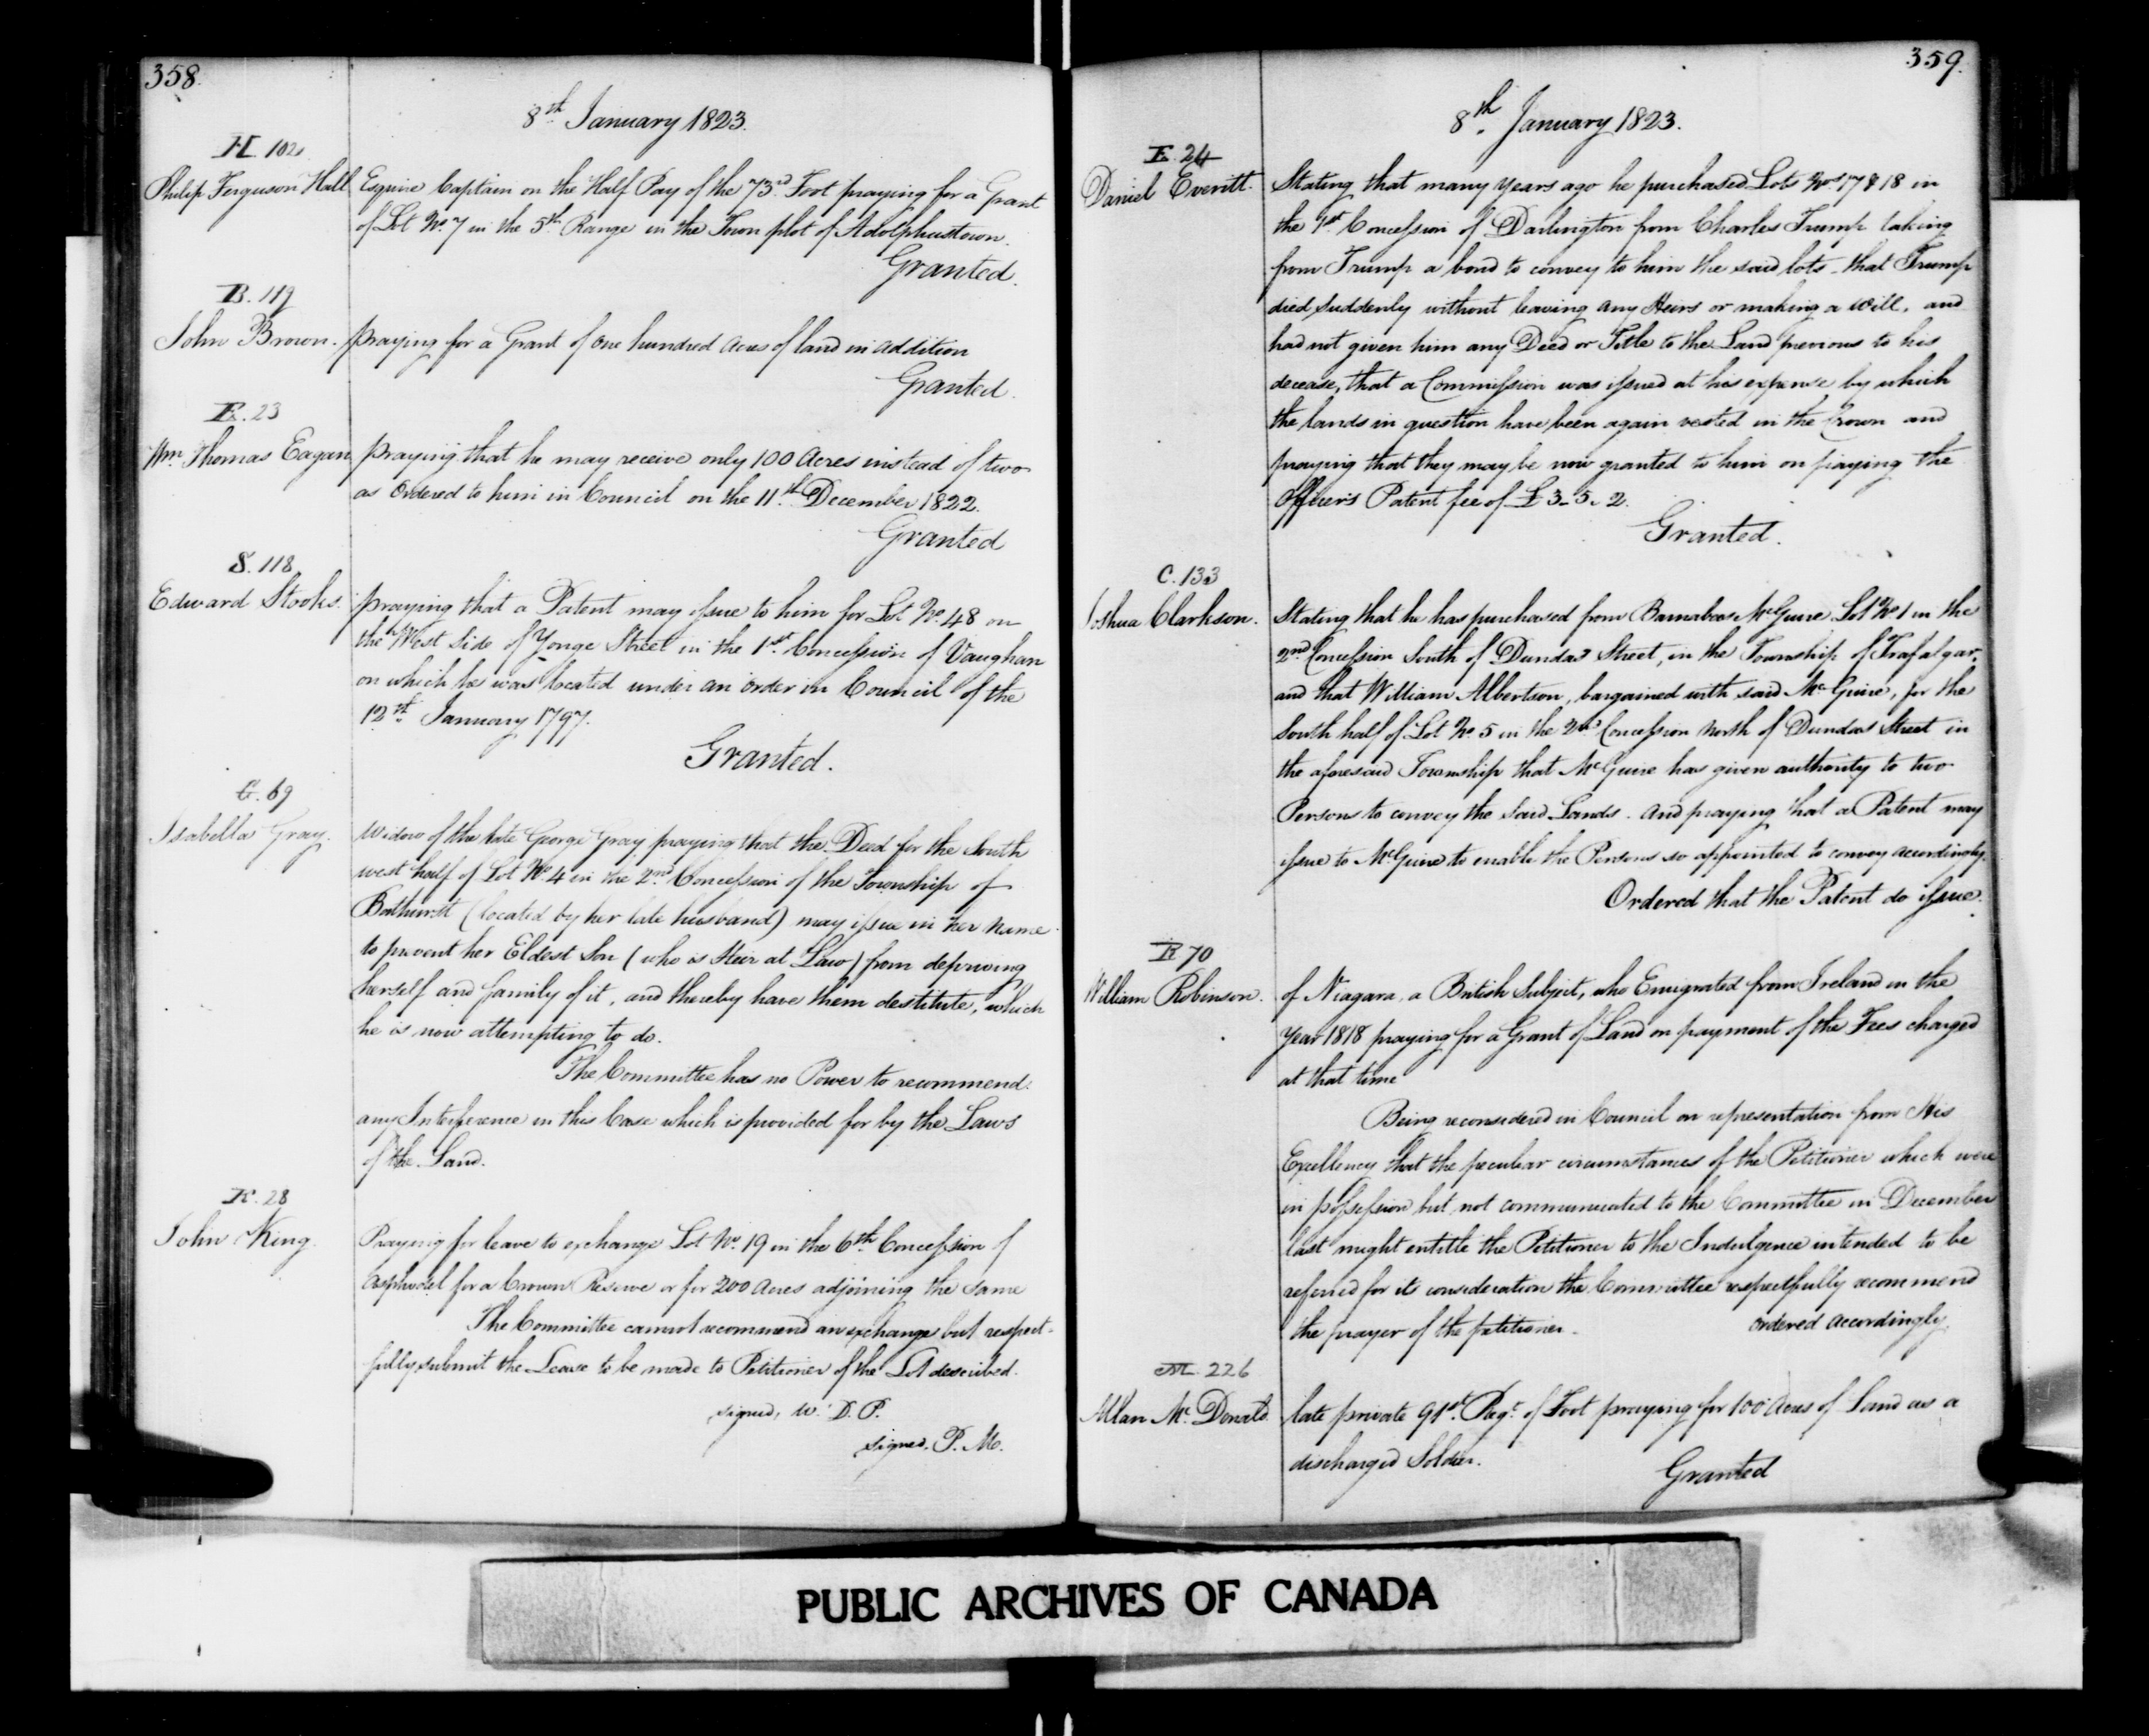 358.
8th January 1823.
H. 102
Philip Ferguson Hall
Esquire Captain on the Half Pay of the 73rd Foot praying for a Grant
of Lot No. 7 in the 5th Range in the Town plot of Adolphustown.
Granted.
B. 119
John Brown.
praying for a Grant of One hundred Acres of land in addition
Granted.
E. 23
Wm. Thomas Eagan
praying that he may receive only 100 Acres instead of two
as Ordered to him in Council on the 11th December 1822.
Granted
S. 118
Edward Stooks.
praying that a Patent may issue to him for Lot No. 48 on
the West Side of Yonge Street in the 1st Concession of Vaughan
on which he was located under an order in Council of the
12th January 1797.
Granted.
G. 69
Isabella Gray.
Widow of the late George Gray praying that the Deed for the South
west half of Lot No. 4 in the 2nd Concession of the Township of
Bathurst (located by her late husband) may issue in her name
to prevent her Eldest Son (who is Heir at Law) from depriving
herself and family of it, and thereby have them destitute, which
he is now attempting to do.
The Committee has no Power to recommend
any Interference in this Case which is provided for by the Laws
of the Land.
K. 28
John King.
Praying for leave to exchange Lot No. 19 in the 6th Concession of
Asphodel for a Crown Reserve or for 200 Acres adjoining the same
The Committee cannot recommend an exchange but respect-
fully submit the Lease to be made to Petitioner of the Lot described.
signed, W. D. P.
signed. P. M.
359.
8th January 1823.
E. 24
Daniel Everitt.
Stating that many years ago he purchased Lots Nos 17 & 18 in
the 1st Concession of Darlington from Charles Trump taking
from Trump a bond to convey to him the said lots - that Trump
died suddenly without leaving any Heirs or making a Will, and
had not given him any Deed or Title to the Land previous to his
decease, that a Commission was issued at his expense by which
the lands in question have been again vested in the Crown and
praying that they may be now granted to him on paying the
Officers Patent fee of £3-5-2.
Granted.
C. 133
Joshua Clarkson.
Stating that he has purchased from Barnabas McGuire Lot No 1 in the
2nd Concession South of Dundas Street, in the Township of Trafalgar,
and that William Albertson, bargained with said McGuire, for the
South half of Lot No. 5 in the 2nd Concession North of Dundas Street in
the aforesaid Township that McGuire has given authority to two
Persons to convey the said Lands - And praying that a Patent may
issue to McGuire to enable the Persons so appointed to convey accordingly.
Ordered that the Patent do issue.
R 70
William Robinson.
of Niagara, a British Subject, who Emigrated from Ireland in the
year 1818 praying for a Grant of Land on payment of the Fees charged
at that time
Being reconsidered in Council on representation from His
Excellency that the peculiar circumstances of the Petitioner which were
in possession but not communicated to the Committee in December
last might entitle the Petitioner to the Indulgence intended to be
referred for its consideration the Committee respectfully recommend
the prayer of the petitioner.
Ordered Accordingly.
M. 226
Allan Mc. Donald.
late private 91st. Regt. of Foot praying for 100 Acres of Land as a
discharged Soldier.
Granted
PUBLIC ARCHIVES OF CANADA